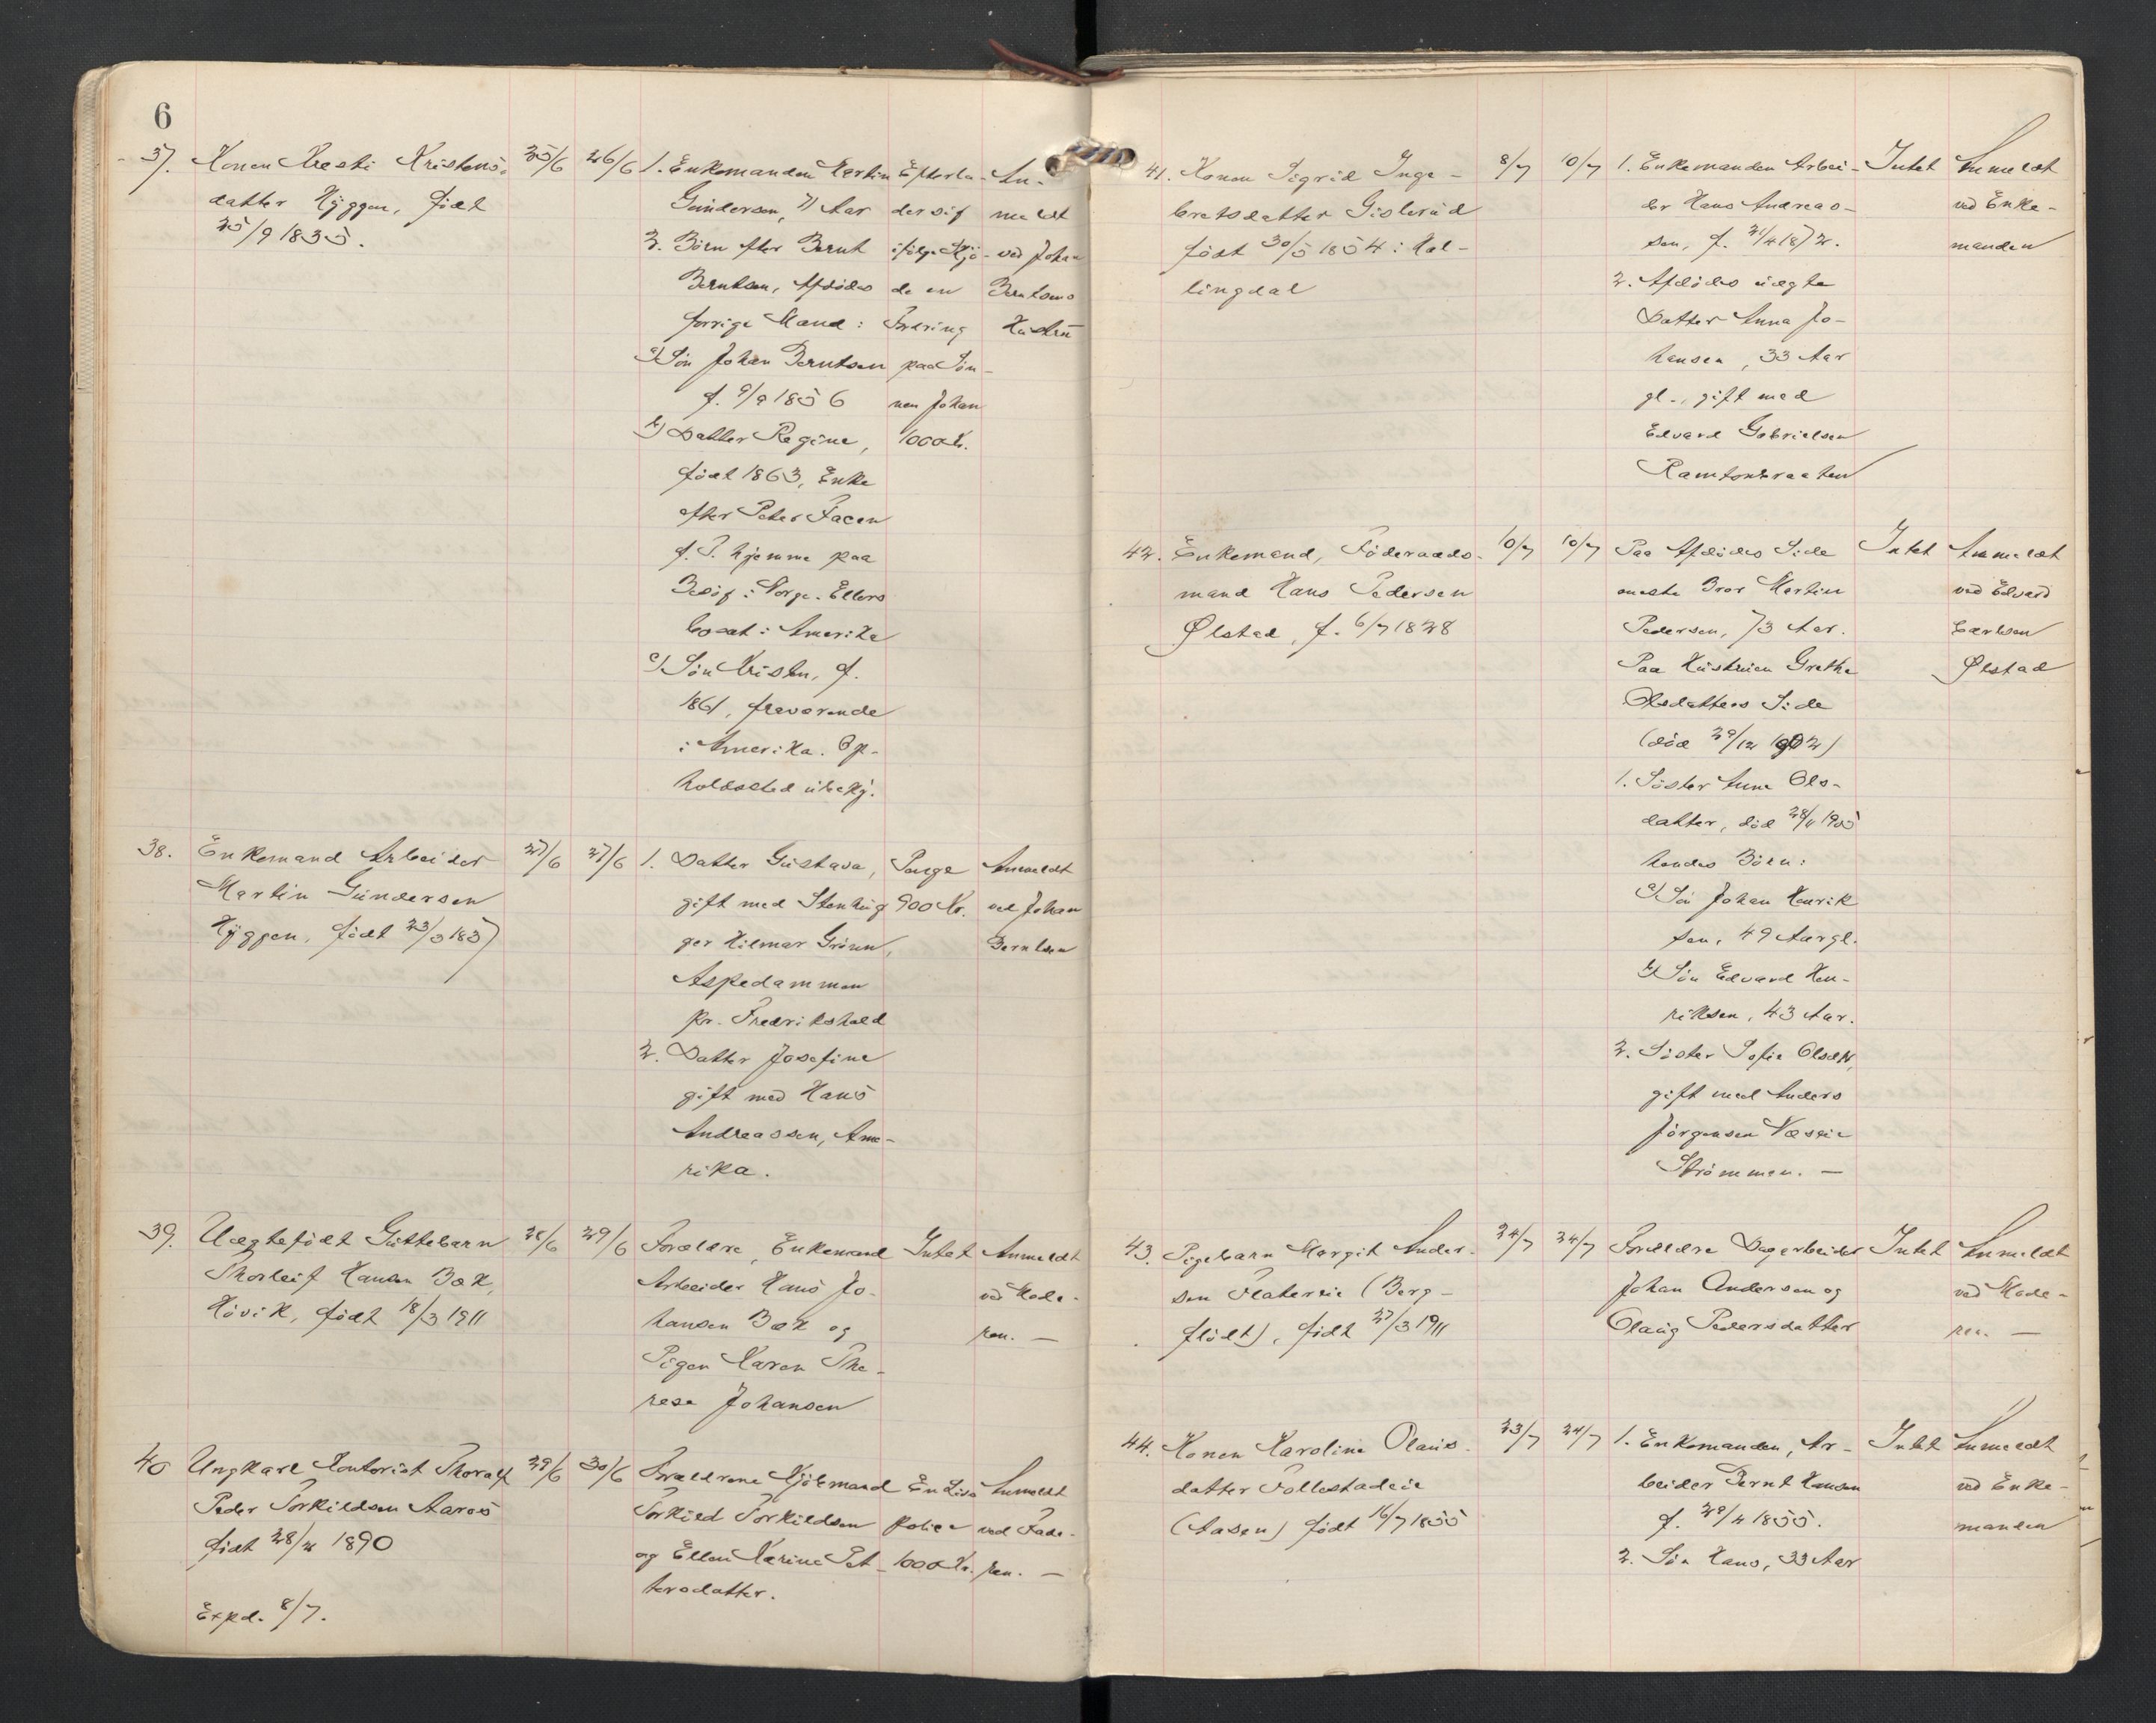 6
37. Konen Kresti Kristens-
datter Hyggen, født
25/9 1835.
25/6
26/6
1. Enkemanden Martin
Gundersen, 71 Aar
2. Børn efter Bernt
Berntsen, Afdødes
forrige Mand:
a) Søn Johan Berntsen
f. 9/9 1856
b) Datter Regine,
født 1863, Enke
efter Peter
f. T. hjemme paa
Besøg i Norge. Ellers
bosat i Amerika
c) Søn Kristen, f.
1861, fraværende
i Amerika. Op-
holdssted ubekj.
Efterla-
der sig
ifølge Skjø-
de en
Fordring
paa Søn-
nen Johan
1000 Kr.
An-
meldt
ved Johan
Berntsens
Hustru
38. Enkemand Arbeider
Martin Gundersen
Hyggen, født 23/3 1837
27/6
27/6
1. Datter Gustava,
gift med Stenhug-
ger Hilmar Grønn,
Aspedammen
pr. Fredrikshald
2. Datter Josefine
gift med Hans
Andreassen, Ame-
rika.
Penge
900 Kr.
Anmeldt
ved Johan
Berntsen
39. Uægtefødt Guttebarn
Thorleif Hansen Bøk,
Høvik, født 18/3 1911
28/6
29/6
Forældre, Enkemand
Arbeider Hans Jo-
hansen Bøk og
Pigen Karen The-
rese Johansen
Intet
Anmeldt
ved Mode-
ren. —
40 Ungkarl Kontorist Thoralf
Peder Torkildsen Aarøs
født 28/2 1890
Expd. 8/7.
29/6
30/6
Forældrene Kjøbmand
Torkild Torkildsen
og Ellen Karine Pet-
tersdatter.
En Livs
police
1000 Kr.
Anmeldt
ved Fade-
ren. —
41. Konen Sigrid Inge-
bretsdatter Gislerud
født 30/5 1854 i Hal-
lingdal
8/7
10/7
1. Enkemanden Arbei-
der Hans Andreas-
sen, f. 21/4 1872.
2. Afdødes uægte
Datter Anna Jo-
hansen, 33 Aar
gl., gift med
Edvard Gabrielsen
Ramtonbraaten
Intet
Anmeldt
ved Enke-
manden
42. Enkemand, Føderaads-
mand Hans Pedersen
Ølstad, f. 6/7 1828
10/7
10/7
Paa Afdødes Side
eneste Bror Martin
Pedersen, 73 Aar.
Paa Hustruen Grethe
Olsdatters Side
(død 29/12 1902)
1. Søster Anne Ols-
datter, død 28/1 1905
hendes Børn:
a) Søn Johan Henrik
sen, 49 Aar gl.
b) Søn Edvard Hen-
riksen, 43 Aar.
2. Søster Sofie Olsdtr,
gift med Anders
Jørgensen Næseie
Strømmen. —
Intet
Anmeldt
ved Edvard
Carlsen
Ølstad
43. Pigebarn Margit Ander-
sen Flatereie (Berg-
flødt), født 27/3 1911
24/7
24/7
Forældre Dagarbeider
Johan Andersen og
Olaug Pedersdatter
Intet
Anmeldt
ved Mode-
ren. —
44. Konen Karoline Olaus-
datter Follestadeie
(Aasen) født 16/7 1855
23/7
24/7
1. Enkemanden, Ar-
beider Bernt Hansen
f. 29/4 1855.
2. Søn Hans, 33 Aar
Intet
Anmeldt
ved Enke-
manden